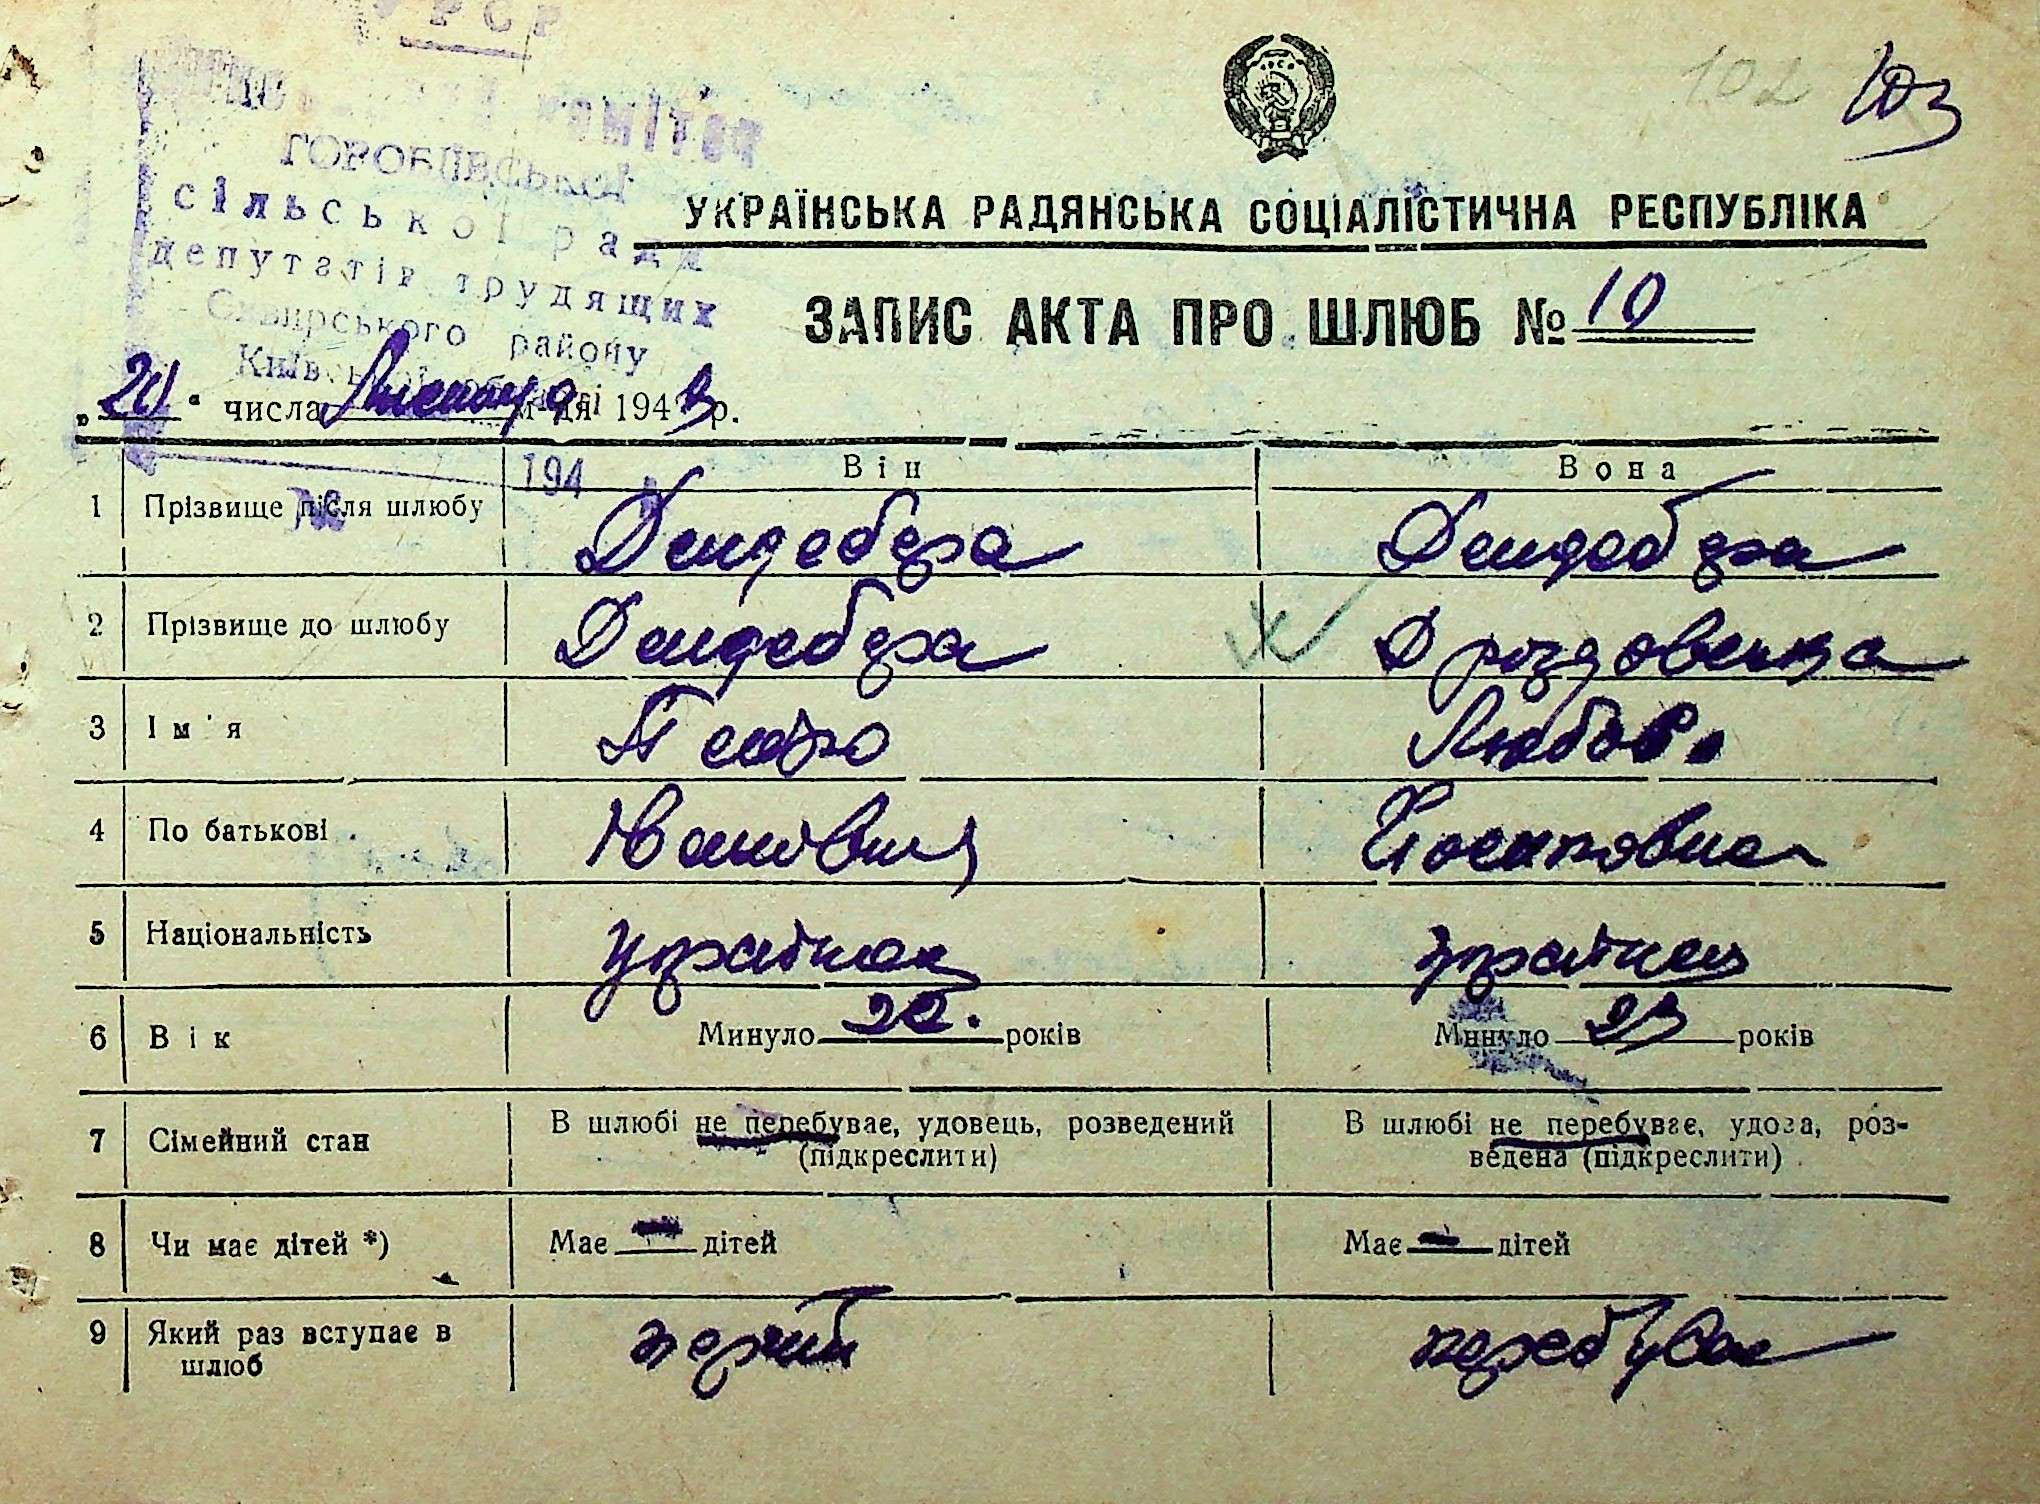 УРСР
102 103
комітет
ГОРОБІЇВСЬКОЇ
сільської ради
депутатів трудящих
Сквирського району
Київської області
УКРАЇНСЬКА РАДЯНСЬКА СОЦІАЛІСТИЧНА РЕСПУБЛІКА
ЗАПИС АКТА ПРО ШЛЮБ № 10
„20“ числа Листопада м-ця 194 р.
194
Він Вона
1 Прізвище після шлюбу Дендебера Дендебера
2 Прізвище до шлюбу Дендебера Дроздовська
3 Ім'я Петро Любов.
4 По батькові Іванович Йосиповна
5 Національність українець українець
6 Вік Минуло 22. років Минуло 23 років
7 Сімейний стан В шлюбі не перебуває, удовець, розведений (підкреслити) В шлюбі не перебуває, удова, розведена (підкреслити)
8 Чи має дітей *) Має — дітей Має — дітей
9 Який раз вступає в шлюб перший перебуває